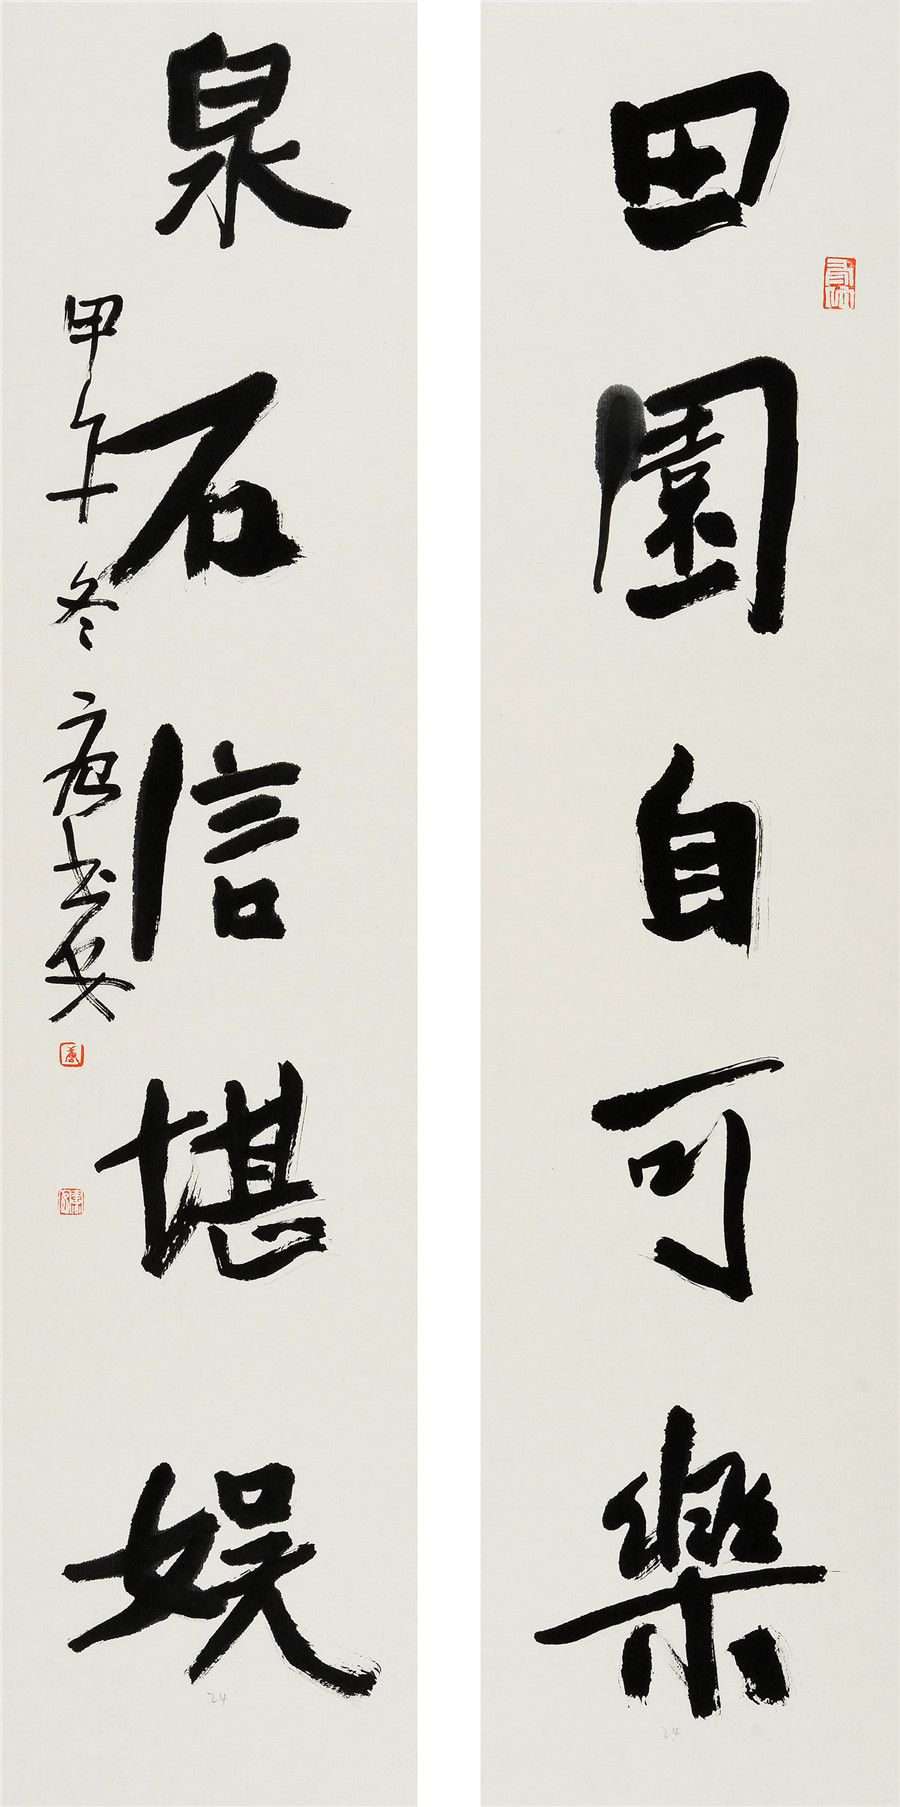 田園自可樂
泉石信堪娱
甲午冬唐书安
24
24